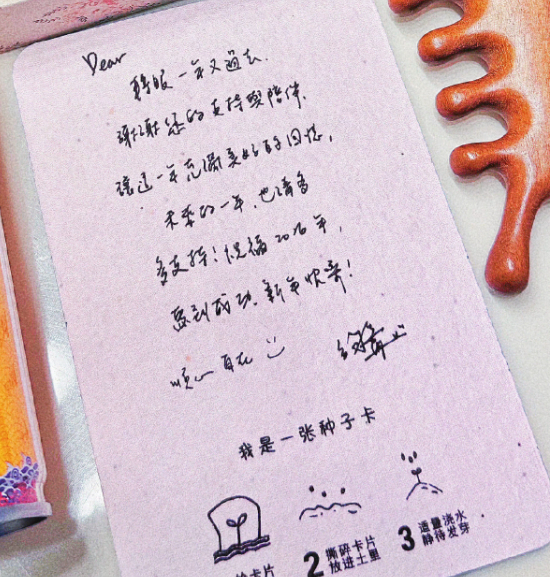 Dear
转眼一年又過去，
谢谢您的支持與陪伴，
讓这一年充滿美好的回憶，
未來的一年，也請多
多支持！祝福2026年，
馬到成功、新年快樂！
順心自在
我是一张种子卡
卡片
2 撕碎卡片
放进土里
3 适量浇水
静待发芽